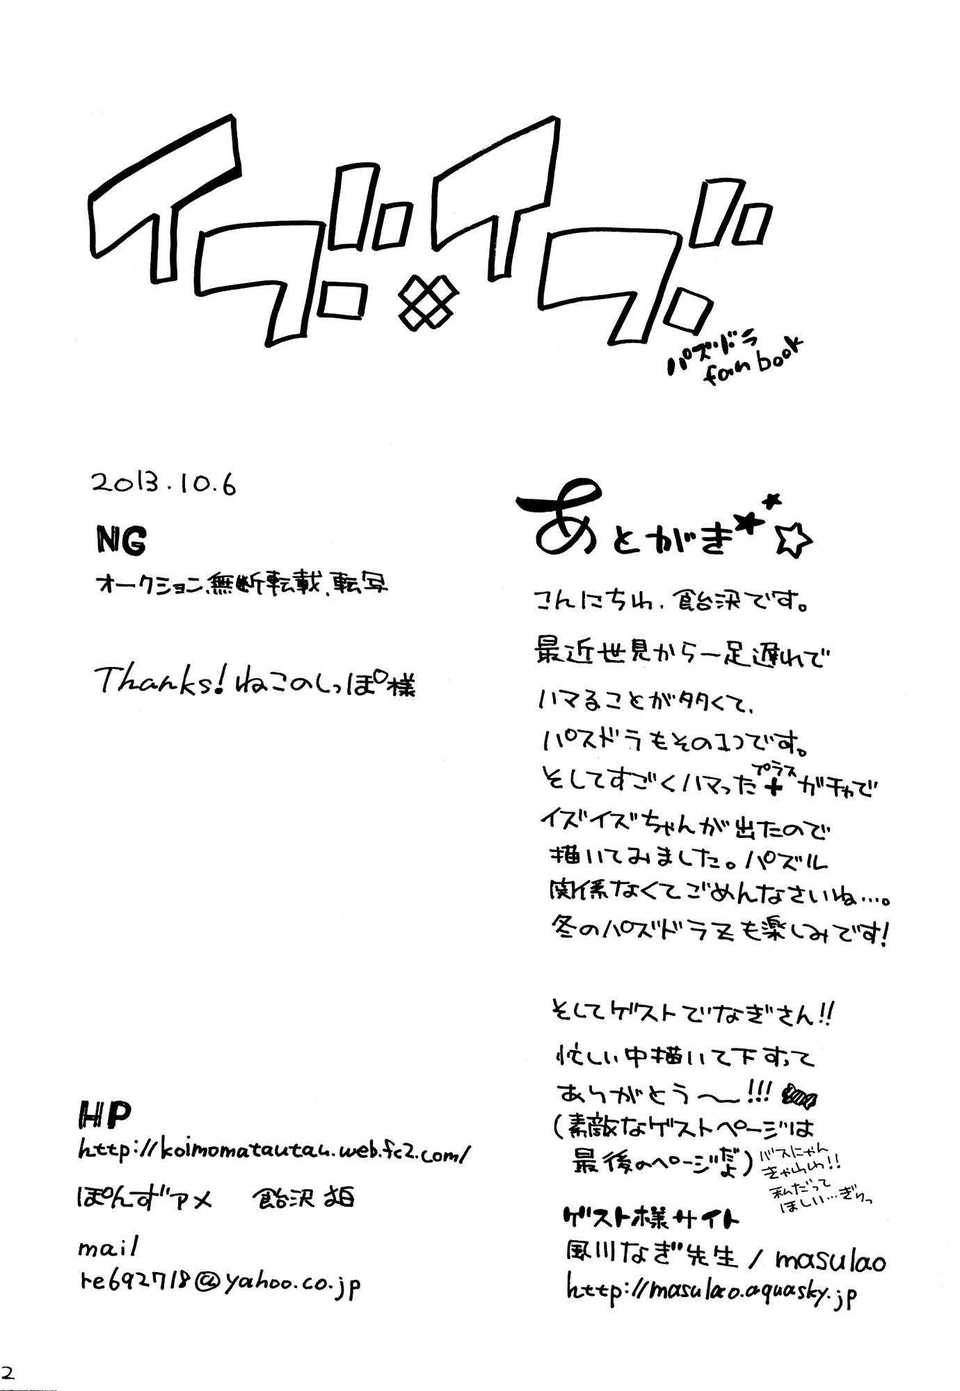 イズ×イズ
パズドラ
fan book
2013.10.6
NG
オークション、無断転載、転写
Thanks! ねこのしっぽ様
HP
http://koimomatautau.web.fc2.com/
ぽんずアメ 飴沢
mail
re692718@yahoo.co.jp
あとがき
こんにちわ、飴沢です。
最近世見から一足遅れで
ハマることが多くて、
パスドラもその1つです。
そしてすごくハマった+プラスガチャで
イズイズちゃんが出たので
描いてみました。パズル
関係なくてごめんなさいね…。
冬のパズドラZも楽しみです!
そしてゲストでなぎさん!!
忙しい中描いて下すって
ありがとう〜!!!
(素敵なゲストページは
最後のページだよ)
バスにゃん
きゃわわ!!
私だって
ほしい…ぎりっ
ゲスト様サイト
風川なぎ先生/masulao
http://masulao.aquasky.jp
2